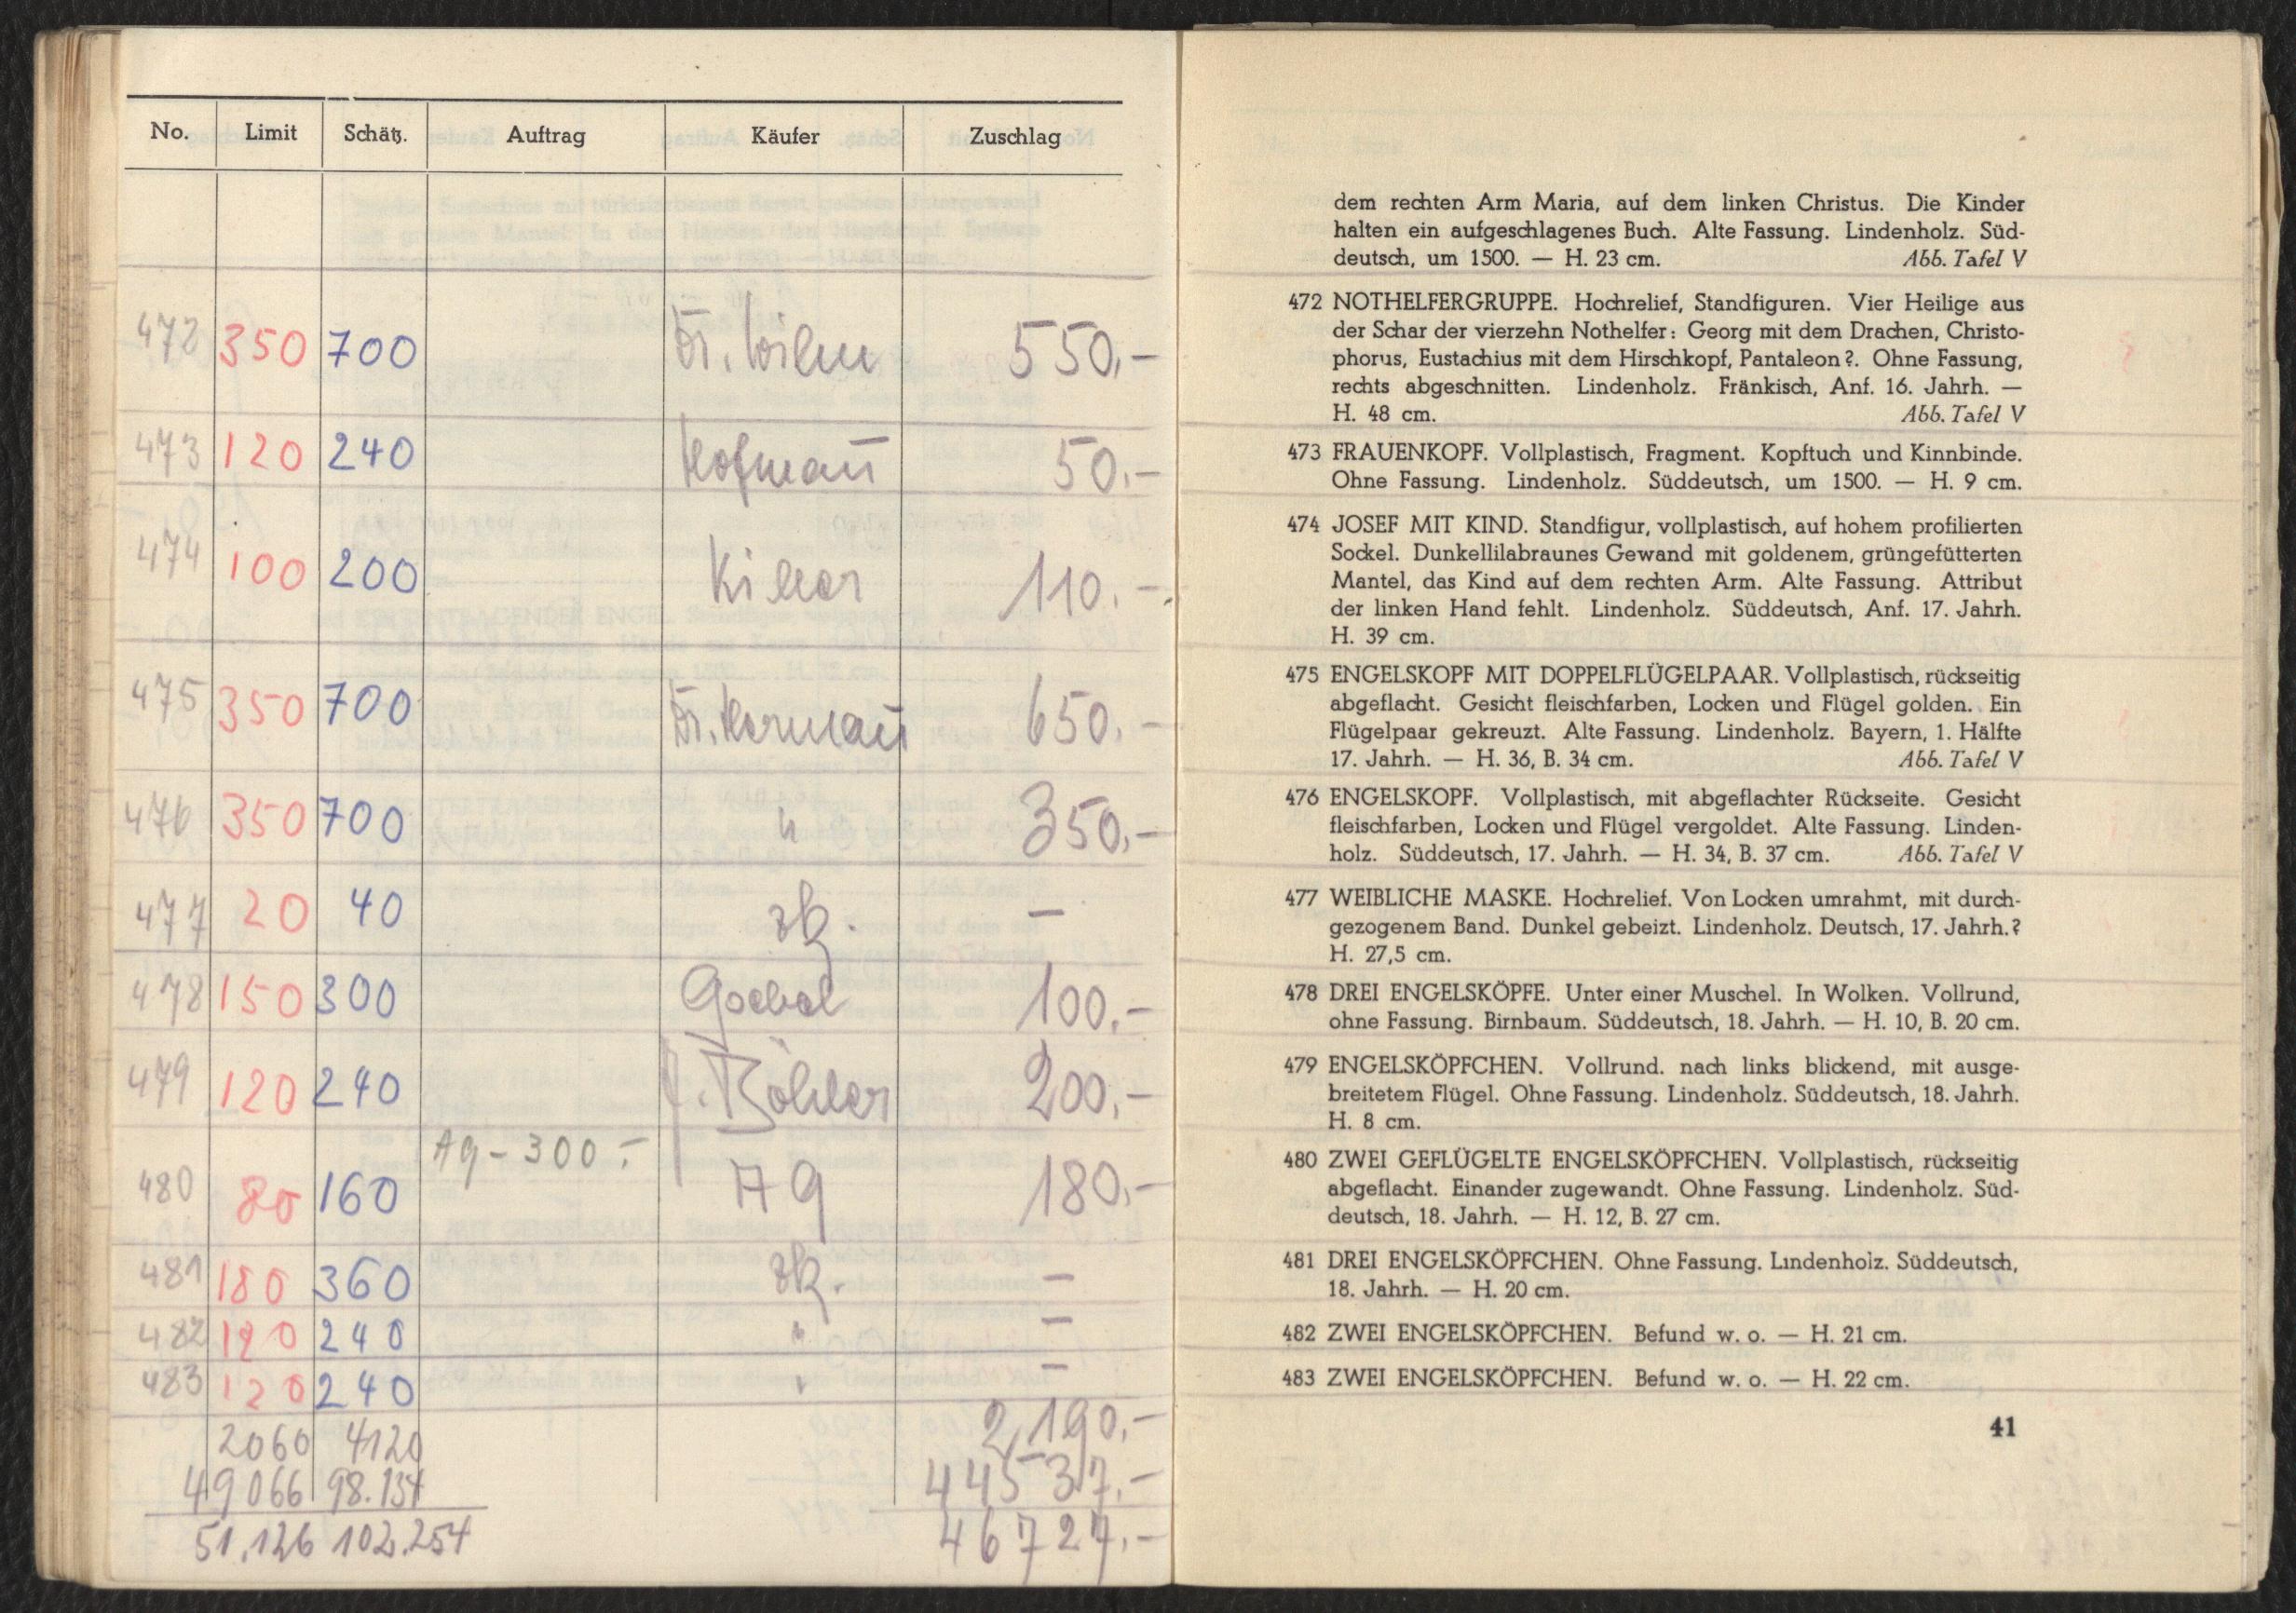 No. Limit Schätz. Auftrag Käufer Zuschlag
472 350 700 Dr. Wilm 550,-
473 120 240 Hofmann 50.-
474 100 200 110.-
475 350 700 Dr. Hermann 650.-
476 350 700 " 350,-
477 20 40 zk. -
478 150 300 Goebel 100.-
479 120 240 J. Böhler 200,-
Ag - 300.-
480 80 160 Ag 180,-
481 180 360 zk. -
482 120 240 " -
483 120 240 " -
2060 4120 2,190,-
49066 98.134 44537.-
51.126 102.254 46727.-
dem rechten Arm Maria, auf dem linken Christus. Die Kinder
halten ein aufgeschlagenes Buch. Alte Fassung. Lindenholz. Süd-
deutsch, um 1500. — H. 23 cm. Abb. Tafel V
472 NOTHELFERGRUPPE. Hochrelief, Standfiguren. Vier Heilige aus
der Schar der vierzehn Nothelfer: Georg mit dem Drachen, Christo-
phorus, Eustachius mit dem Hirschkopf, Pantaleon?. Ohne Fassung,
rechts abgeschnitten. Lindenholz. Fränkisch, Anf. 16. Jahrh. —
H. 48 cm. Abb. Tafel V
473 FRAUENKOPF. Vollplastisch, Fragment. Kopftuch und Kinnbinde.
Ohne Fassung. Lindenholz. Süddeutsch, um 1500. — H. 9 cm.
474 JOSEF MIT KIND. Standfigur, vollplastisch, auf hohem profilierten
Sockel. Dunkellilabraunes Gewand mit goldenem, grüngefütterten
Mantel, das Kind auf dem rechten Arm. Alte Fassung. Attribut
der linken Hand fehlt. Lindenholz. Süddeutsch, Anf. 17. Jahrh.
H. 39 cm.
475 ENGELSKOPF MIT DOPPELFLÜGELPAAR. Vollplastisch, rückseitig
abgeflacht. Gesicht fleischfarben, Locken und Flügel golden. Ein
Flügelpaar gekreuzt. Alte Fassung. Lindenholz. Bayern, 1. Hälfte
17. Jahrh. — H. 36, B. 34 cm. Abb. Tafel V
476 ENGELSKOPF. Vollplastisch, mit abgeflachter Rückseite. Gesicht
fleischfarben, Locken und Flügel vergoldet. Alte Fassung. Linden-
holz. Süddeutsch, 17. Jahrh. — H. 34, B. 37 cm. Abb. Tafel V
477 WEIBLICHE MASKE. Hochrelief. Von Locken umrahmt, mit durch-
gezogenem Band. Dunkel gebeizt. Lindenholz. Deutsch, 17. Jahrh.?
H. 27,5 cm.
478 DREI ENGELSKÖPFE. Unter einer Muschel. In Wolken. Vollrund,
ohne Fassung. Birnbaum. Süddeutsch, 18. Jahrh. — H. 10, B. 20 cm.
479 ENGELSKÖPFCHEN. Vollrund. nach links blickend, mit ausge-
breitetem Flügel. Ohne Fassung. Lindenholz. Süddeutsch, 18. Jahrh.
H. 8 cm.
480 ZWEI GEFLÜGELTE ENGELSKÖPFCHEN. Vollplastisch, rückseitig
abgeflacht. Einander zugewandt. Ohne Fassung. Lindenholz. Süd-
deutsch, 18. Jahrh. — H. 12, B. 27 cm.
481 DREI ENGELSKÖPFCHEN. Ohne Fassung. Lindenholz. Süddeutsch,
18. Jahrh. — H. 20 cm.
482 ZWEI ENGELSKÖPFCHEN. Befund w. o. — H. 21 cm.
483 ZWEI ENGELSKÖPFCHEN. Befund w. o. — H. 22 cm.
41